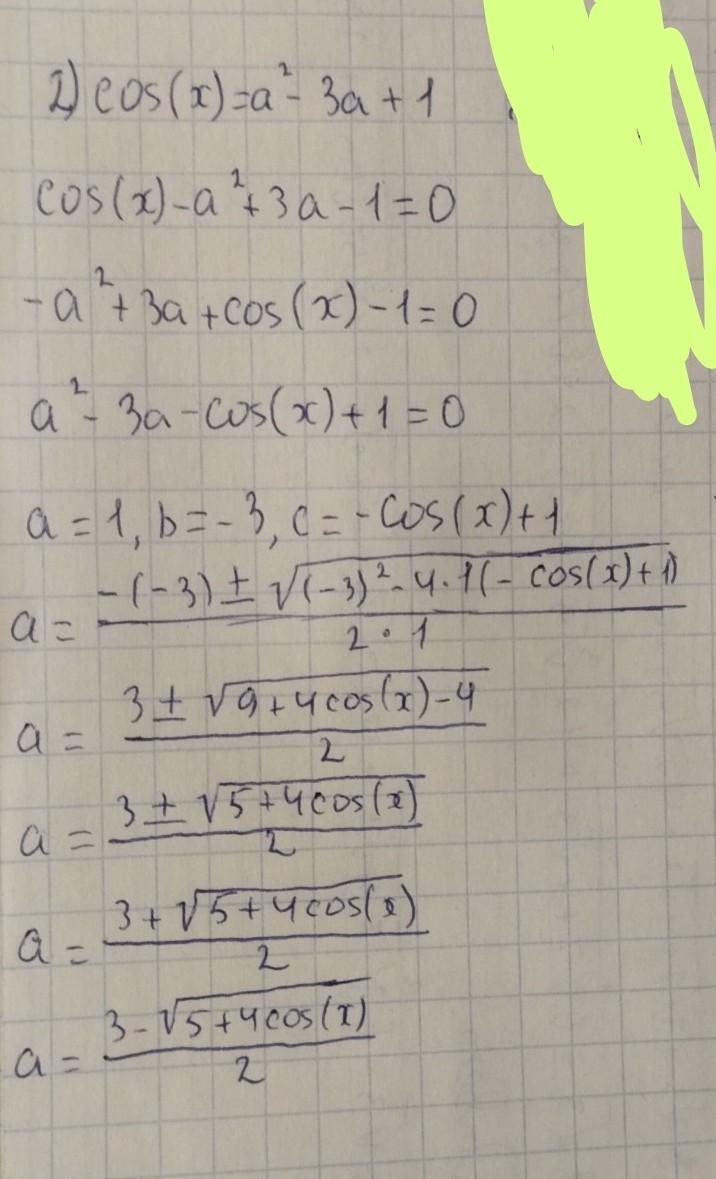 2) cos(x)=a²- 3a+1
cos(x)-a²+3a-1=0
-a²+3a+cos(x)-1=0
a²- 3a-cos(x)+1=0
a=1, b=-3, c=-cos(x)+1
a= (-(-3)±√((-3)²-4·1(-cos(x)+1)))/(2·1)
a= (3±√(9+4cos(x)-4))/2
a= (3±√(5+4cos(x)))/2
a= (3+√(5+4cos(x)))/2
a= (3-√(5+4cos(x)))/2